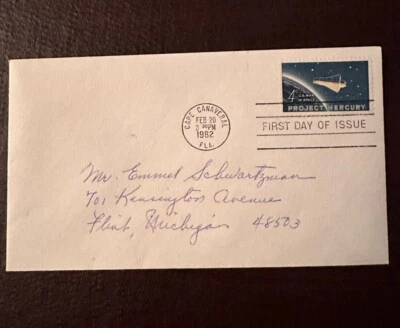 4¢ U.S. MAN
IN SPACE
PROJECT MERCURY
CAPE CANAVERAL
FEB 20
PM
1962
FLA.
FIRST DAY OF ISSUE
Mr. Emmet Schwartzman
701 Kensington Avenue
Flint, Michigan 48503